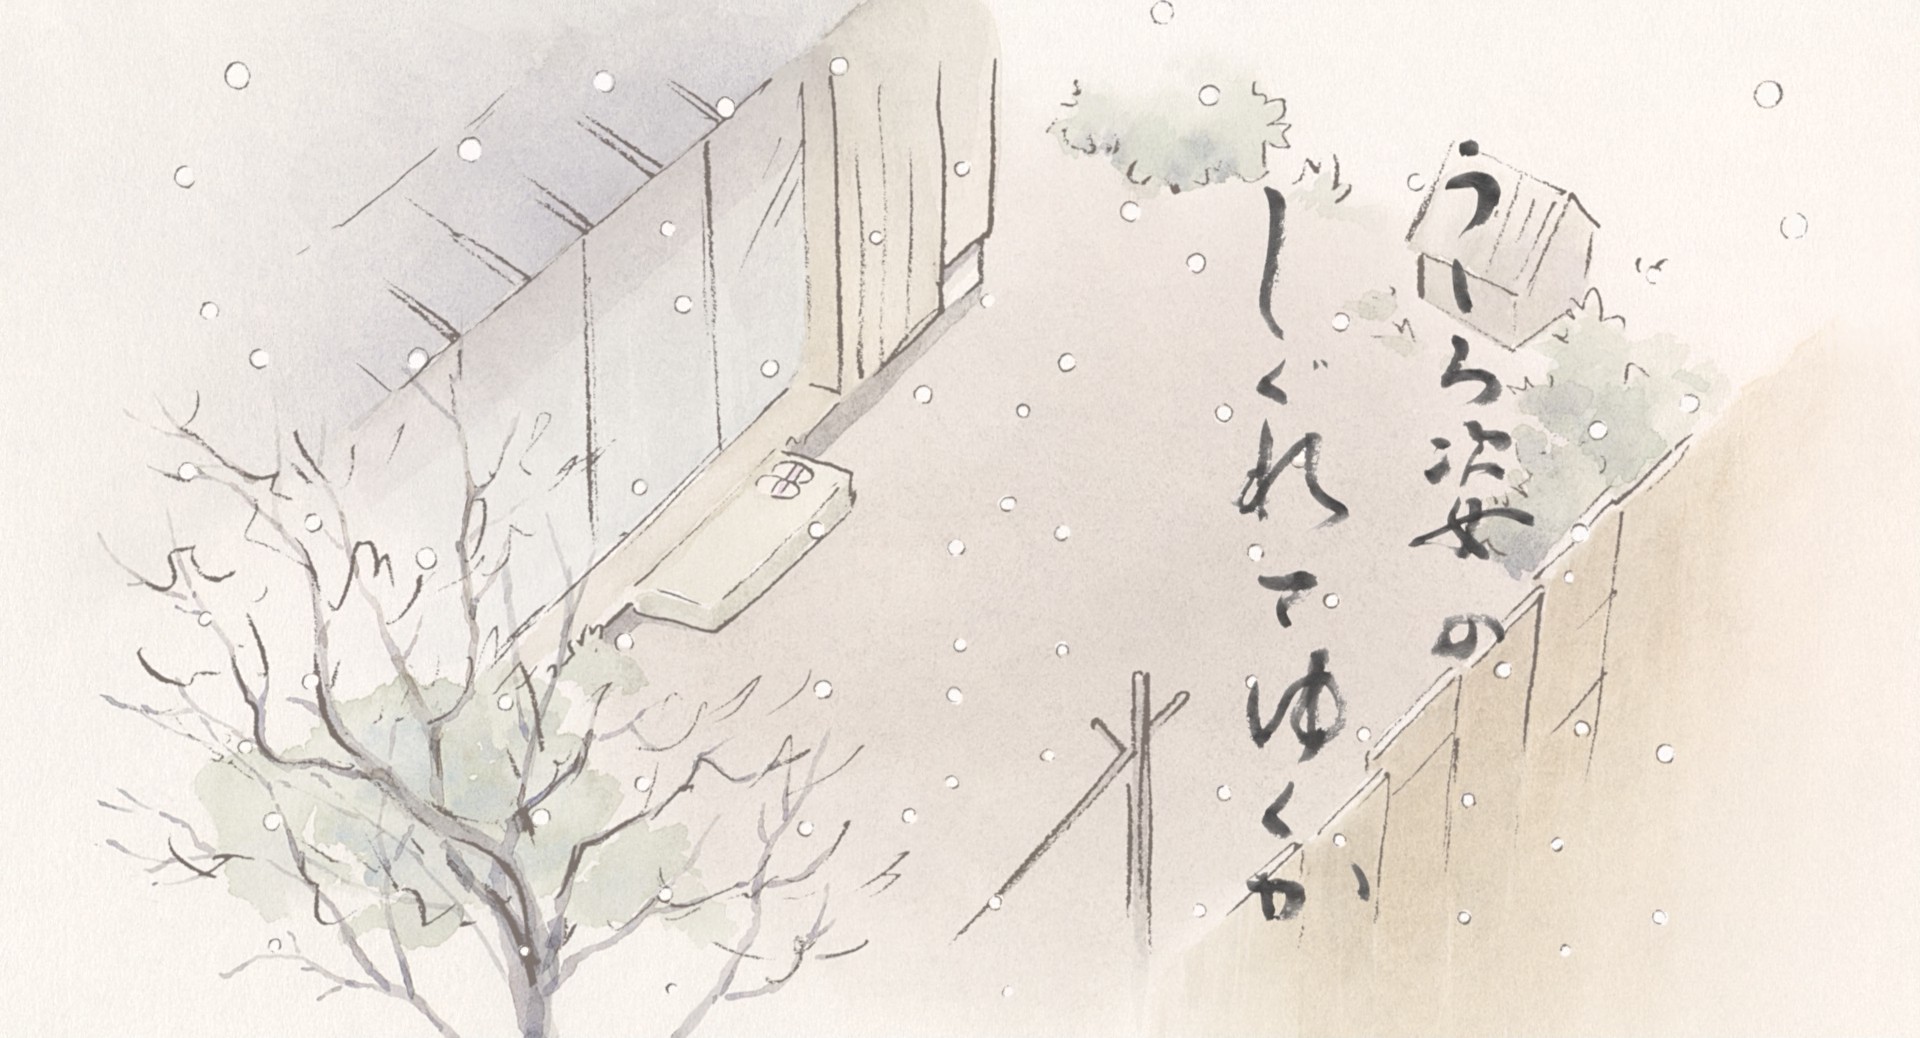 うしろ姿の
しぐれてゆくか